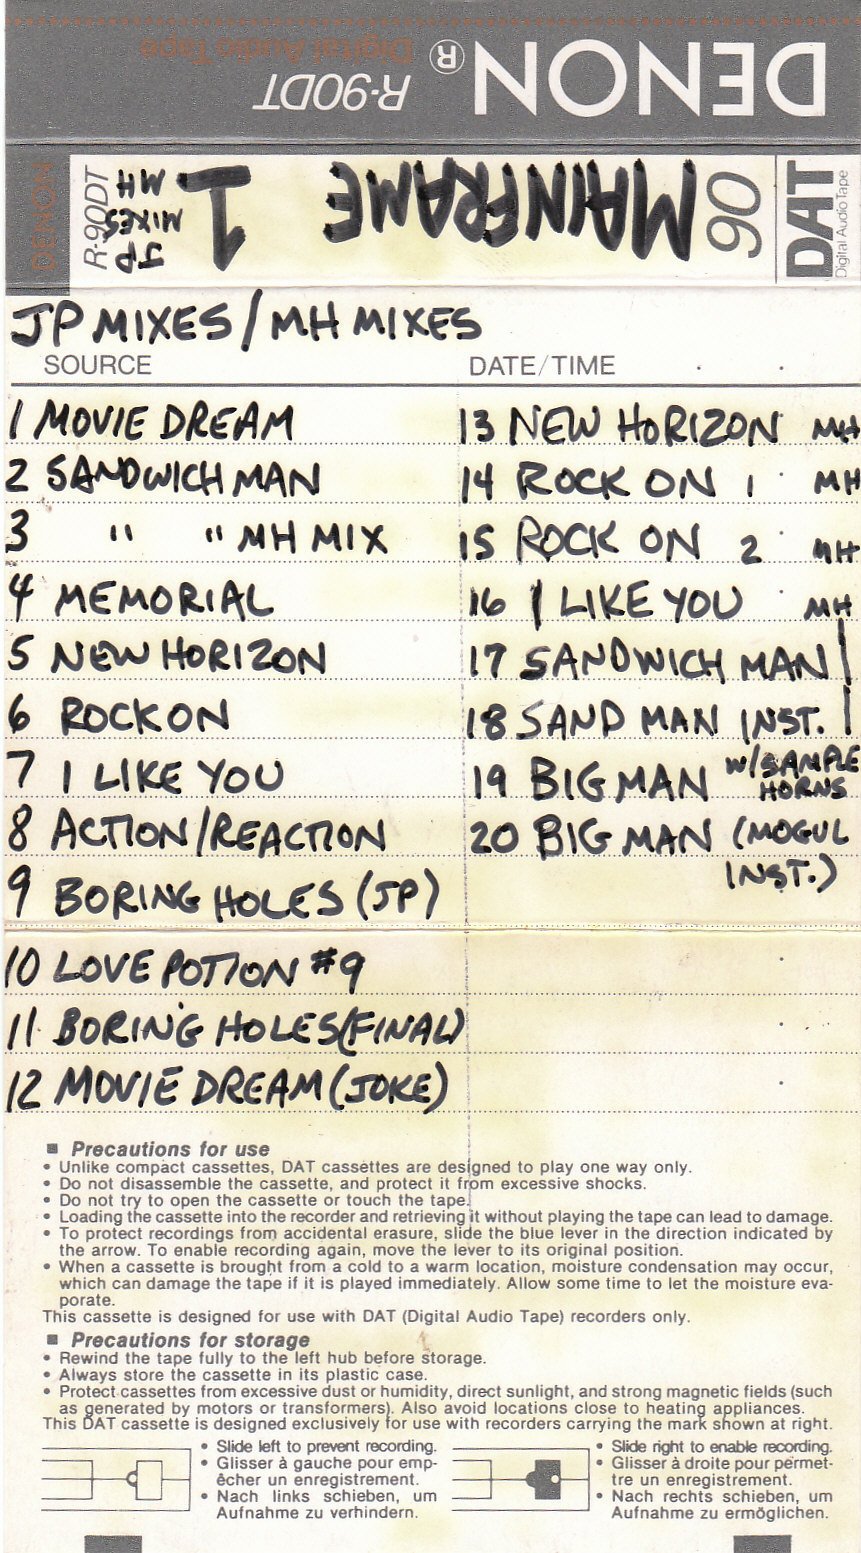 DENON®
R-90DT
Digital Audio Tape
DENON
R-90DT
JP
MIXES
MH
1
MAINFRAME
90
DAT
Digital Audio Tape
JP MIXES/MH MIXES
SOURCE
DATE/TIME
1 MOVIE DREAM
2 SANDWICH MAN
3 " " MH MIX
4 MEMORIAL
5 NEW HORIZON
6 ROCK ON
7 I LIKE YOU
8 ACTION/REACTION
9 BORING HOLES (JP)
10 LOVE POTION #9
11 BORING HOLES (FINAL)
12 MOVIE DREAM (JOKE)
13 NEW HORIZON MH
14 ROCK ON 1 MH
15 ROCK ON 2 MH
16 I LIKE YOU MH
17 SANDWICH MAN |
18 SAND MAN INST. |
19 BIG MAN W/SAMPLE
HORNS
20 BIG MAN (MOGUL
INST.)
■ Precautions for use
• Unlike compact cassettes, DAT cassettes are designed to play one way only.
• Do not disassemble the cassette, and protect it from excessive shocks.
• Do not try to open the cassette or touch the tape.
• Loading the cassette into the recorder and retrieving it without playing the tape can lead to damage.
• To protect recordings from accidental erasure, slide the blue lever in the direction indicated by
the arrow. To enable recording again, move the lever to its original position.
• When a cassette is brought from a cold to a warm location, moisture condensation may occur,
which can damage the tape if it is played immediately. Allow some time to let the moisture eva-
porate.
This cassette is designed for use with DAT (Digital Audio Tape) recorders only.
■ Precautions for storage
• Rewind the tape fully to the left hub before storage.
• Always store the cassette in its plastic case.
• Protect cassettes from excessive dust or humidity, direct sunlight, and strong magnetic fields (such
as generated by motors or transformers). Also avoid locations close to heating appliances.
This DAT cassette is designed exclusively for use with recorders carrying the mark shown at right.
• Slide left to prevent recording.
• Glisser à gauche pour emp-
êcher un enregistrement.
• Nach links schieben, um
Aufnahme zu verhindern.
• Slide right to enable recording.
• Glisser à droite pour permet-
tre un enregistrement.
• Nach rechts schieben, um
Aufnahme zu ermöglichen.